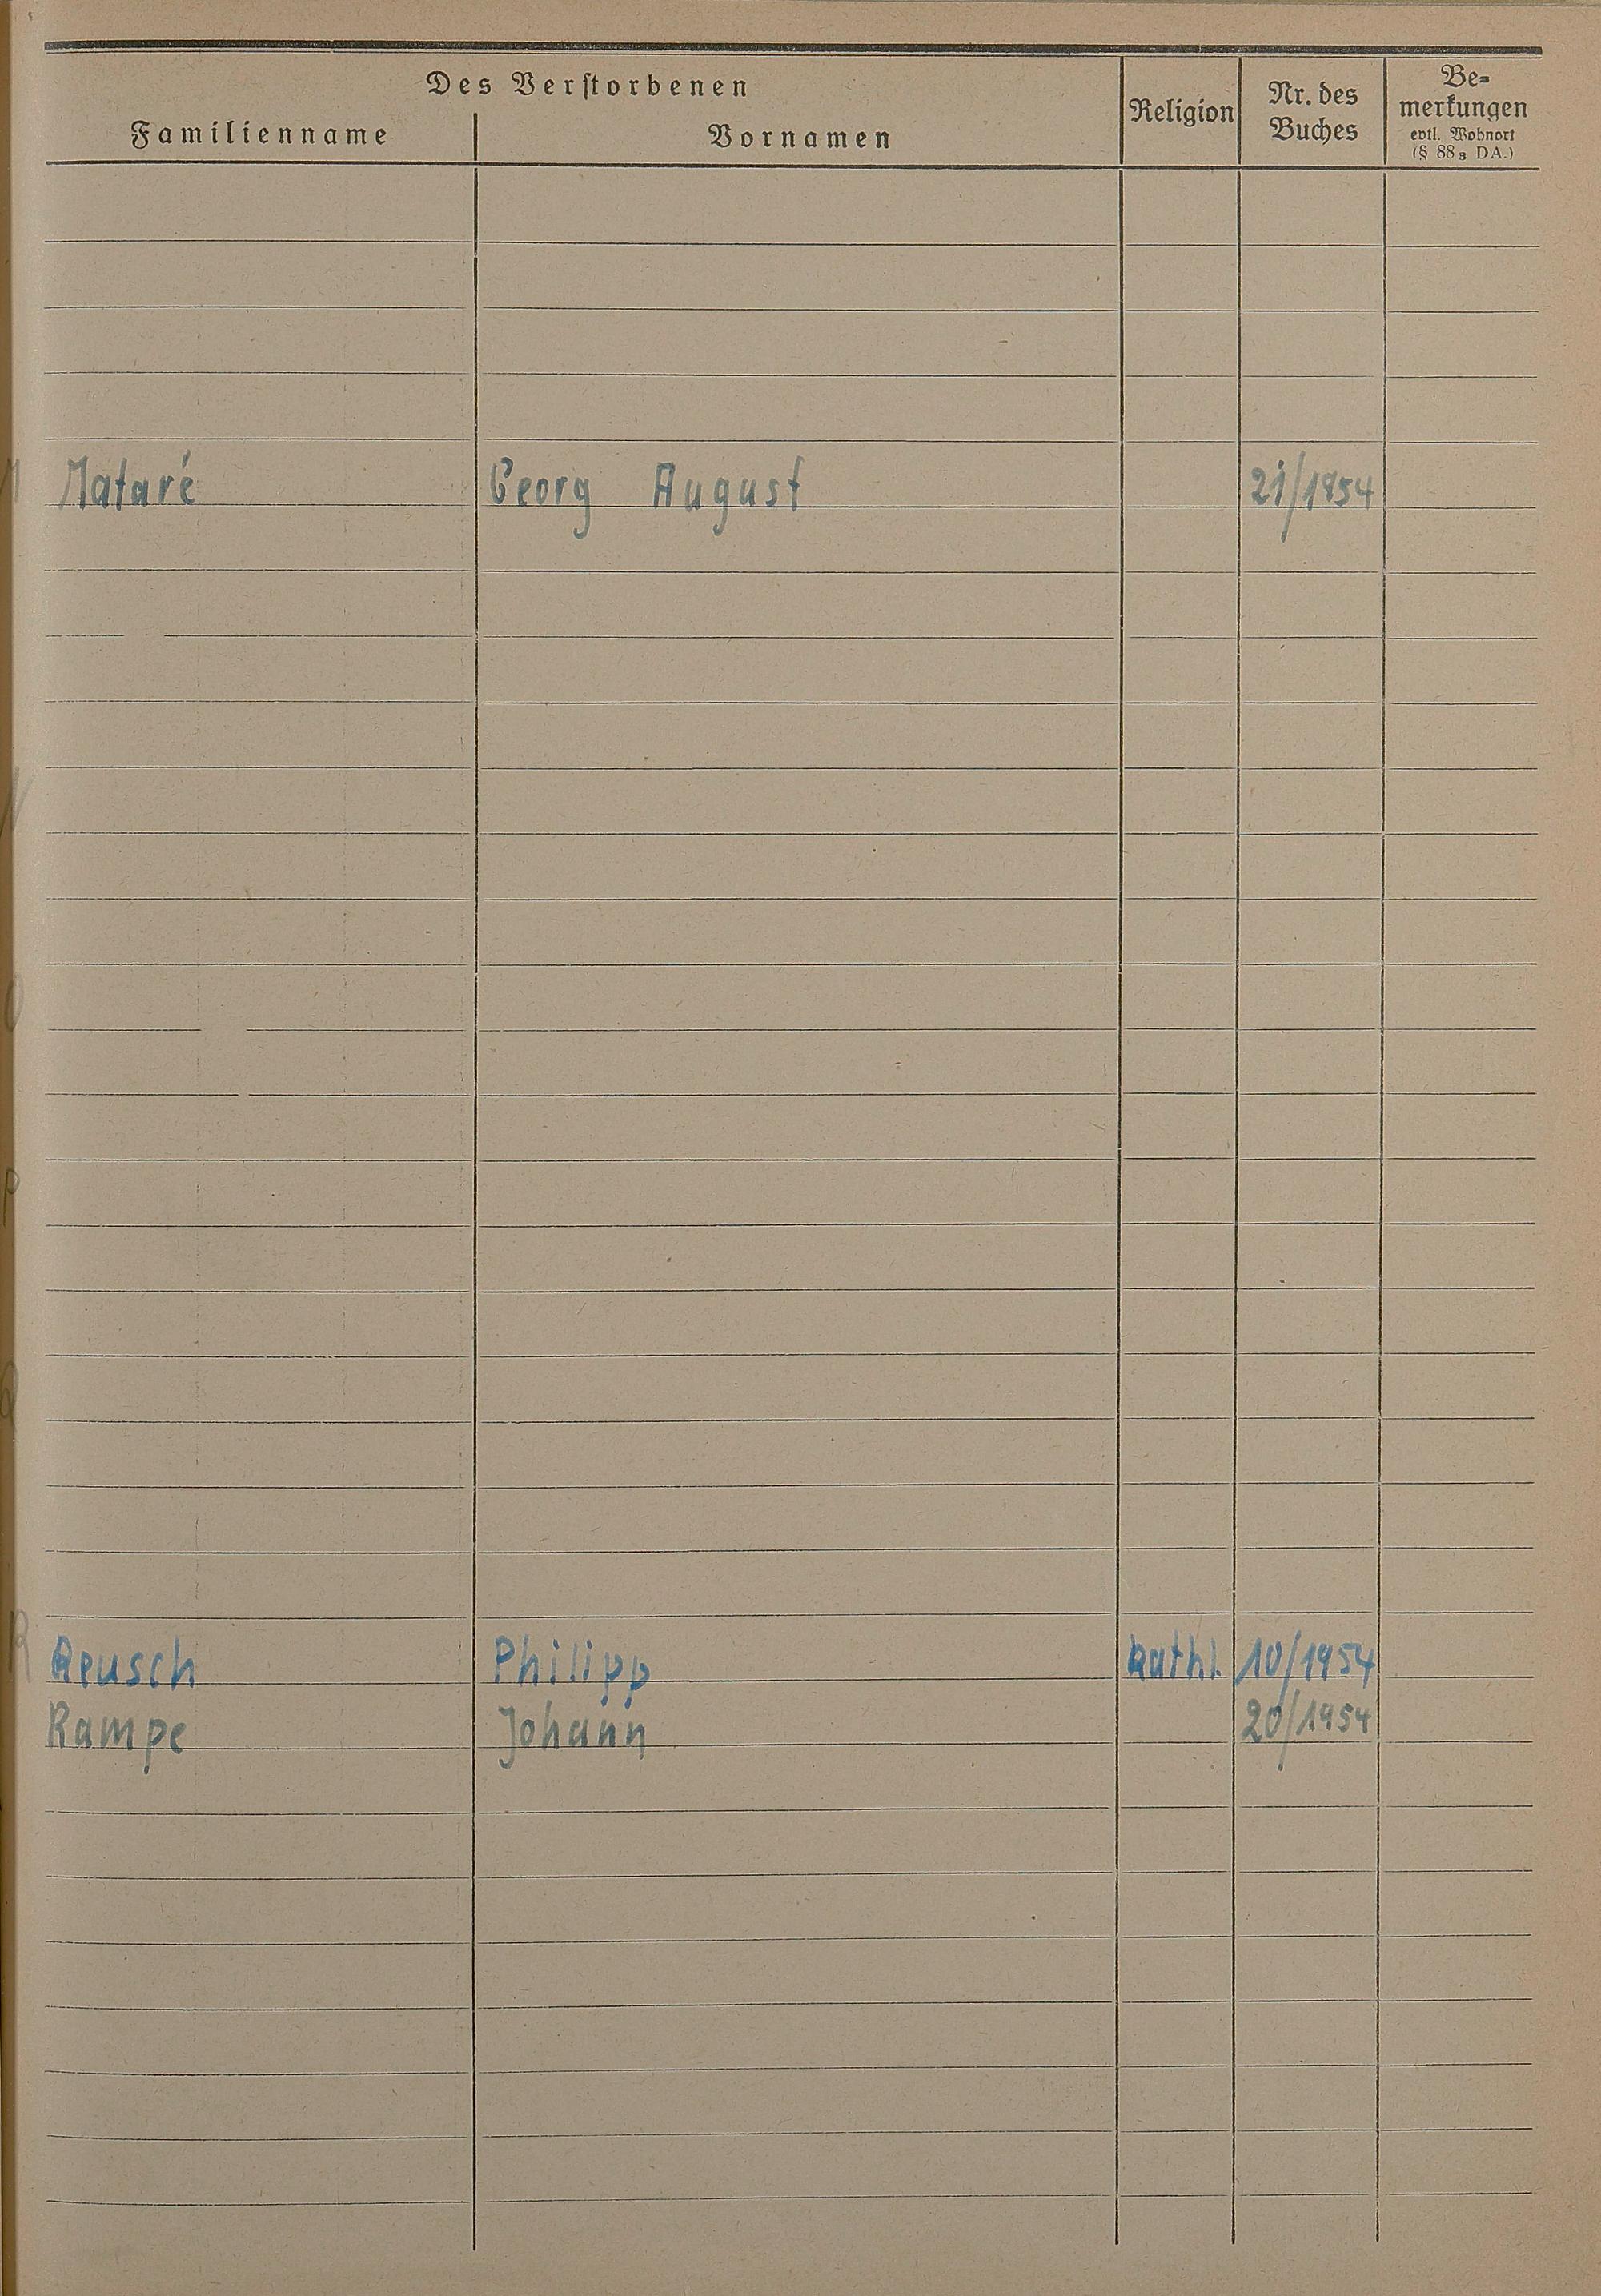 Des Verstorbenen
Familienname Vornamen Religion Nr. des Buches Be=
merkungen
evtl. Wohnort
(§ 88 3 DA.)
M Mataré Georg August 21/1954
N
O
P
Q
R Reusch Philipp Kath. 10/1954
Rampe Johann 20/1954